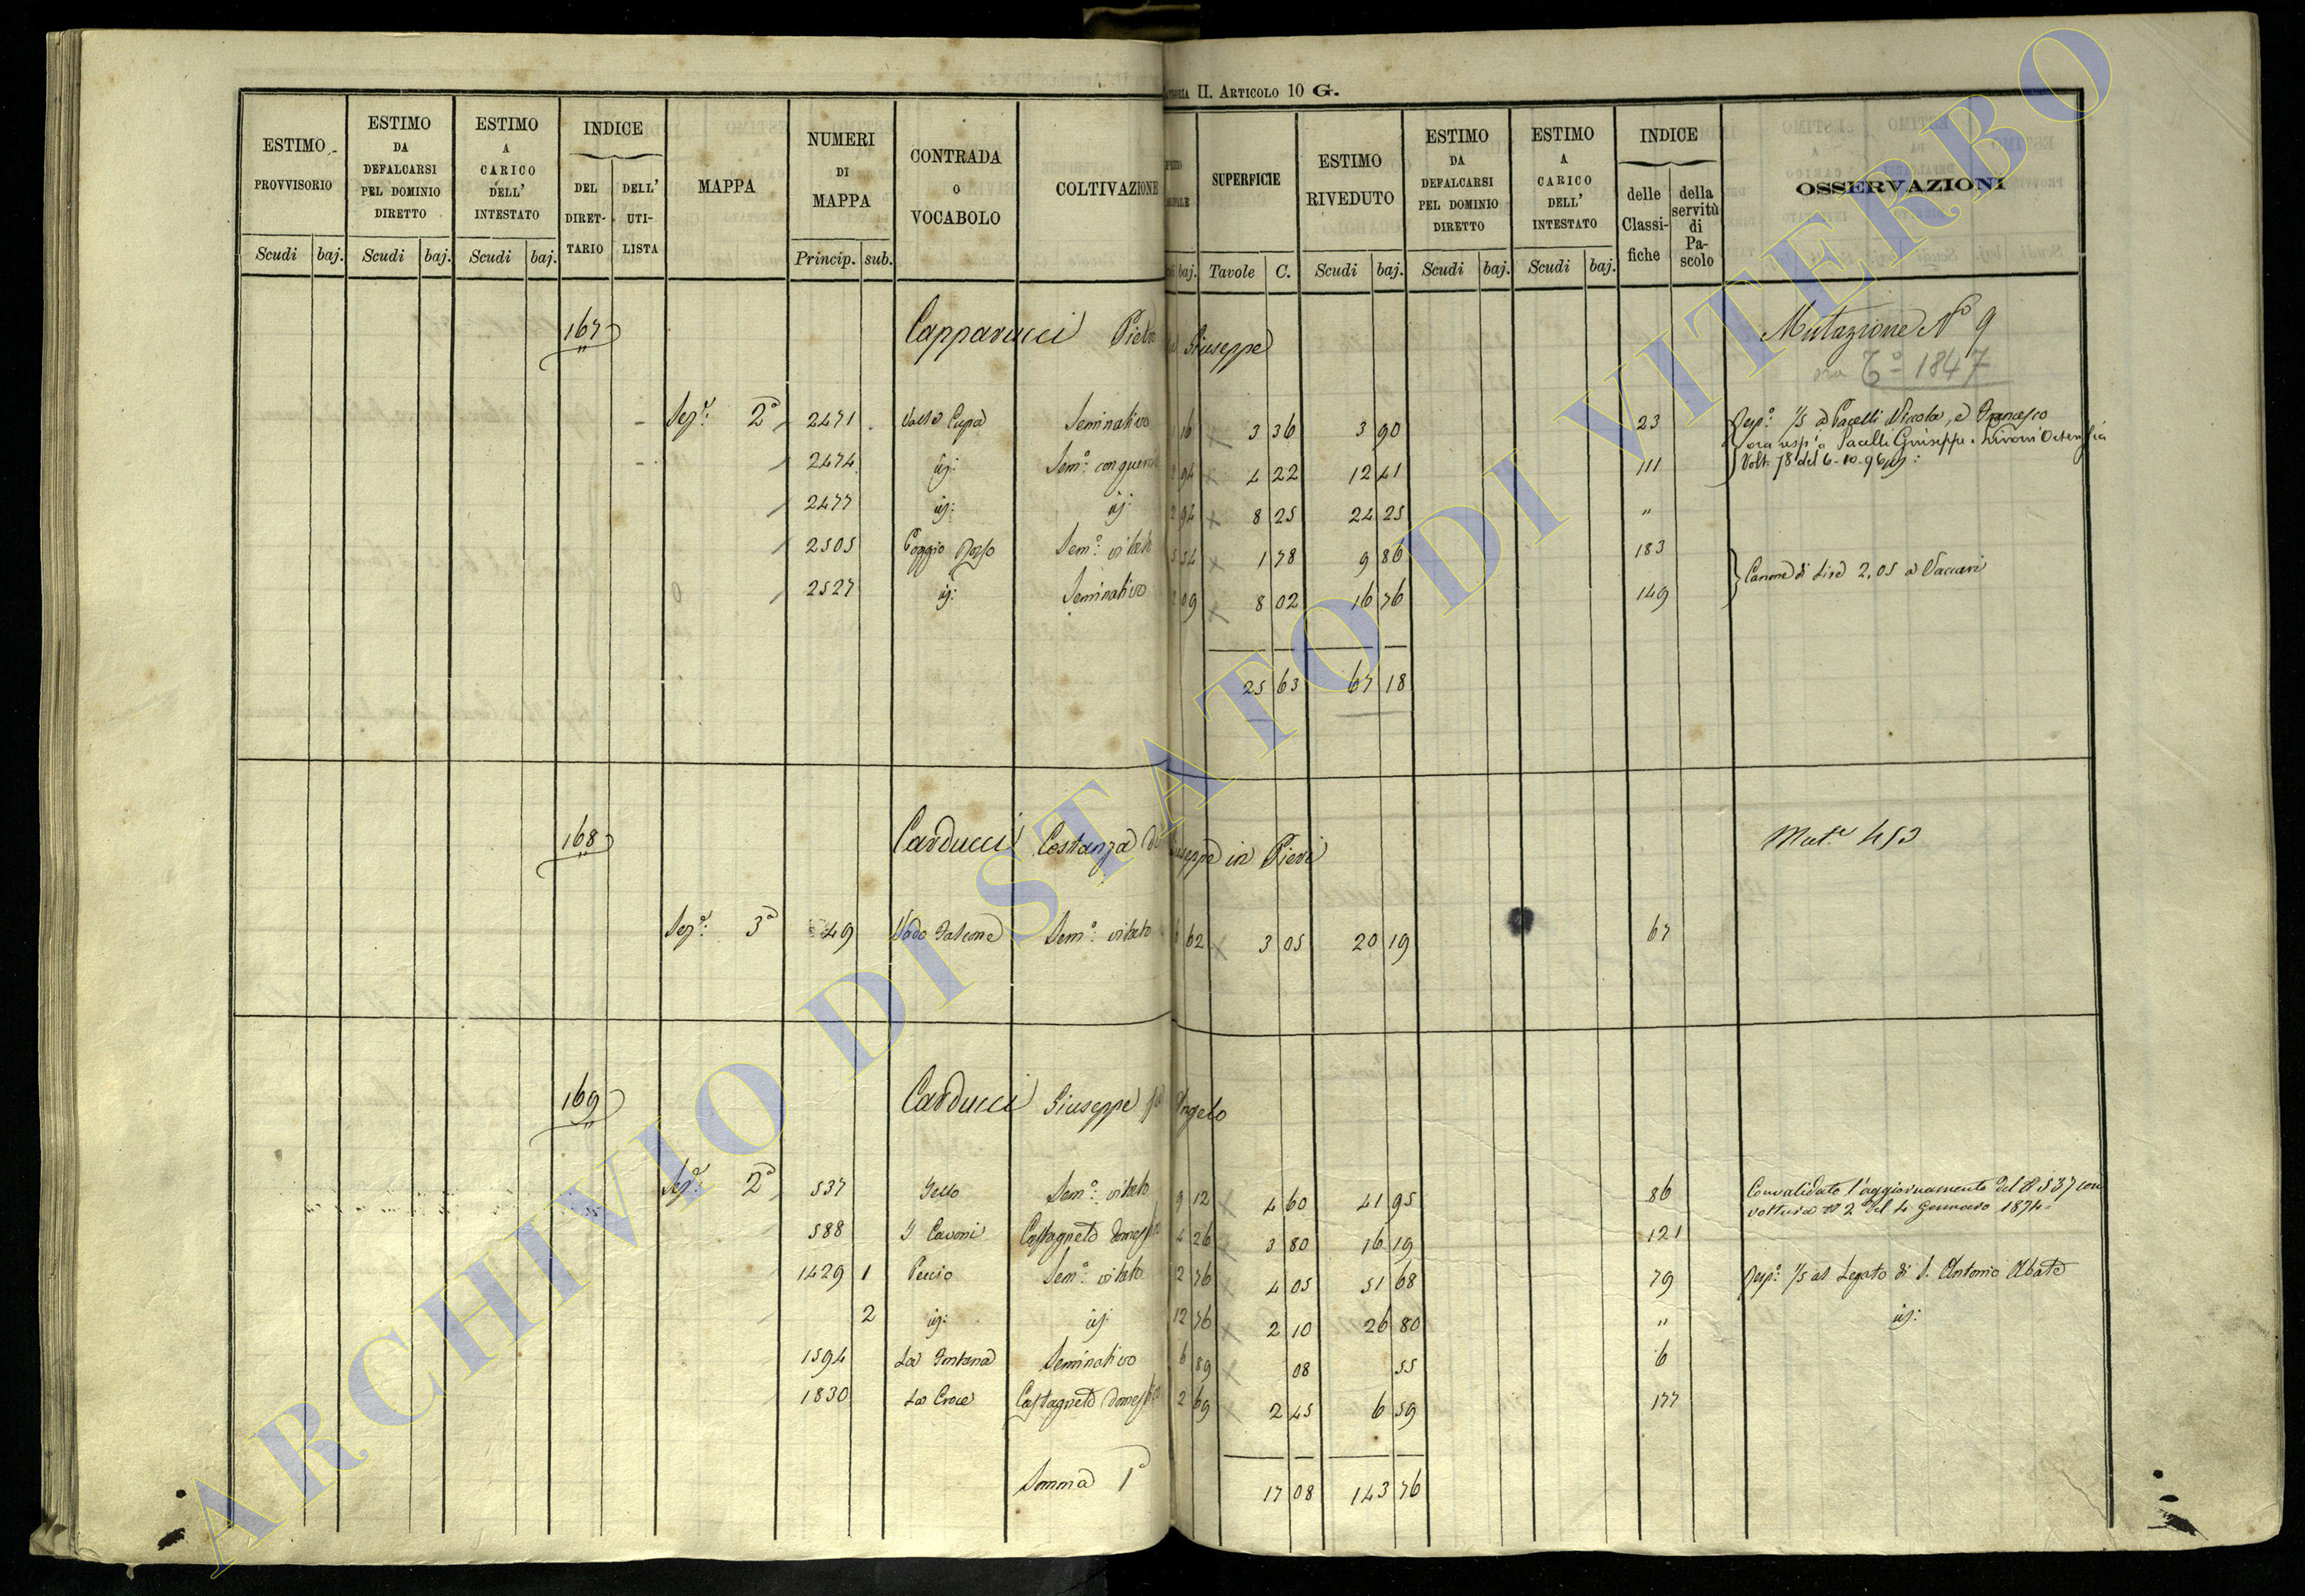 II. Articolo 10 G.
ESTIMO PROVVISORIO | ESTIMO DA DEFALCARSI PEL DOMINIO DIRETTO | ESTIMO A CARICO DELL' INTESTATO | INDICE DEL DIRETTARIO | DELL' UTILISTA | MAPPA | NUMERI DI MAPPA | CONTRADA O VOCABOLO | COLTIVAZIONE | SUPERFICIE | ESTIMO RIVEDUTO | ESTIMO DA DEFALCARSI PEL DOMINIO DIRETTO | ESTIMO A CARICO DELL' INTESTATO | INDICE delle Classifiche | della servitù di Pascolo | OSSERVAZIONI
Scudi | baj. | Scudi | baj. | Scudi | baj. | Princip. | sub. | baj. | Tavole | C. | Scudi | baj. | Scudi | baj. | Scudi | baj.
167 Capparucci Pietro Giuseppe Mutazione N° 9
1847
Sez.e: 2a 2471 Valle Cupa Seminativo 16 3 36 3 90 23 Resp.o 1/5 a Pacelli Nicola, e Francesco
ora resp. a Pacelli Giuseppe
2474 id: Sem.o: con querce 94 4 22 12 41 111 Volt. 78 del 6-10-96
2477 id: id: 2 94 8 25 24 25 "
2505 Poggio Sem.o: vitato 5 54 1 78 9 86 183
2527 id: Seminativo 2 09 8 02 16 76 149 Canone di Lire 2,05 a Vaccari
25 63 67 18
168 Carducci Costanza di Giuseppe in Pieri Mut.e 453
Sez.e: 3a 49 Sem.o: vitato 6 62 3 05 20 19 67
169 Carducci Giuseppe Angelo
Sez.e: 2a 537 Sem.o: vitato 9 12 4 60 41 95 86 Convalidato l'aggiornamento del N 537 con
voltura N 2 del 4 Gennaro 1874
588 I Cavoni Castagneto domestico 4 26 3 80 16 19 121
1429 1 Sem.o: vitato 12 76 4 05 51 68 79 Resp.o: 1/5 al Legato di S. Antonio Abate
2 id: id: 12 76 2 10 26 80 " id:
1594 La Fontana Seminativo 6 89 08 55 6
1830 La Croce Castagneto domestico 2 69 2 45 6 59 177
Somma 1a 17 08 143 76
ARCHIVIO DI STATO DI VITERBO